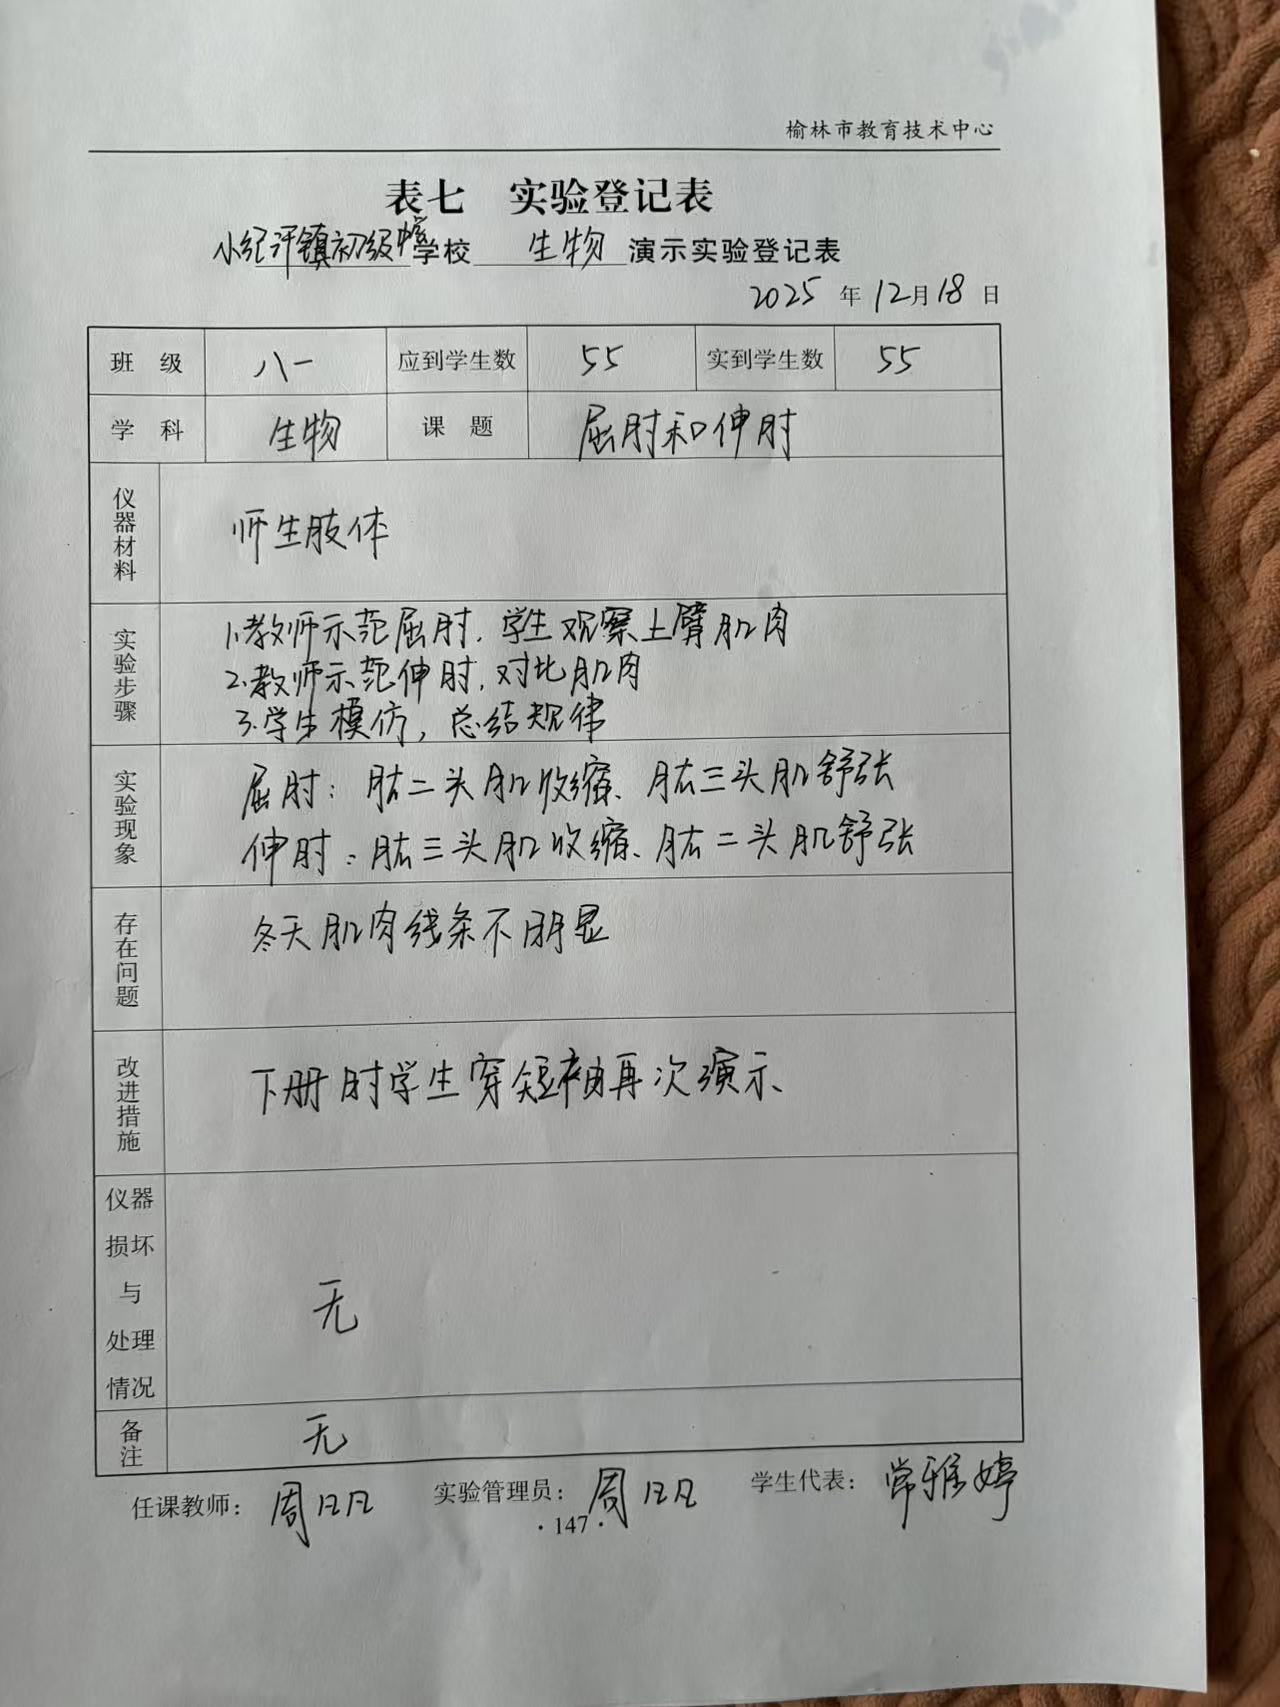 榆林市教育技术中心
表七 实验登记表
小纪汗镇初级中学校 生物 演示实验登记表
2025 年 12 月 18 日
班 级 八一 应到学生数 55 实到学生数 55
学 科 生物 课 题 屈肘和伸肘
仪器材料 师生肢体
实验步骤 1.教师示范屈肘,学生观察上臂肌肉
2.教师示范伸肘,对比肌肉
3.学生模仿,总结规律
实验现象 屈肘:肱二头肌收缩、肱三头肌舒张
伸肘:肱三头肌收缩、肱二头肌舒张
存在问题 冬天肌肉线条不明显
改进措施 下册时学生穿短袖再次演示、
仪器
损坏
与
处理
情况
无
备注 无
任课教师: 周 实验管理员: 周 学生代表: 常雅婷
·147·